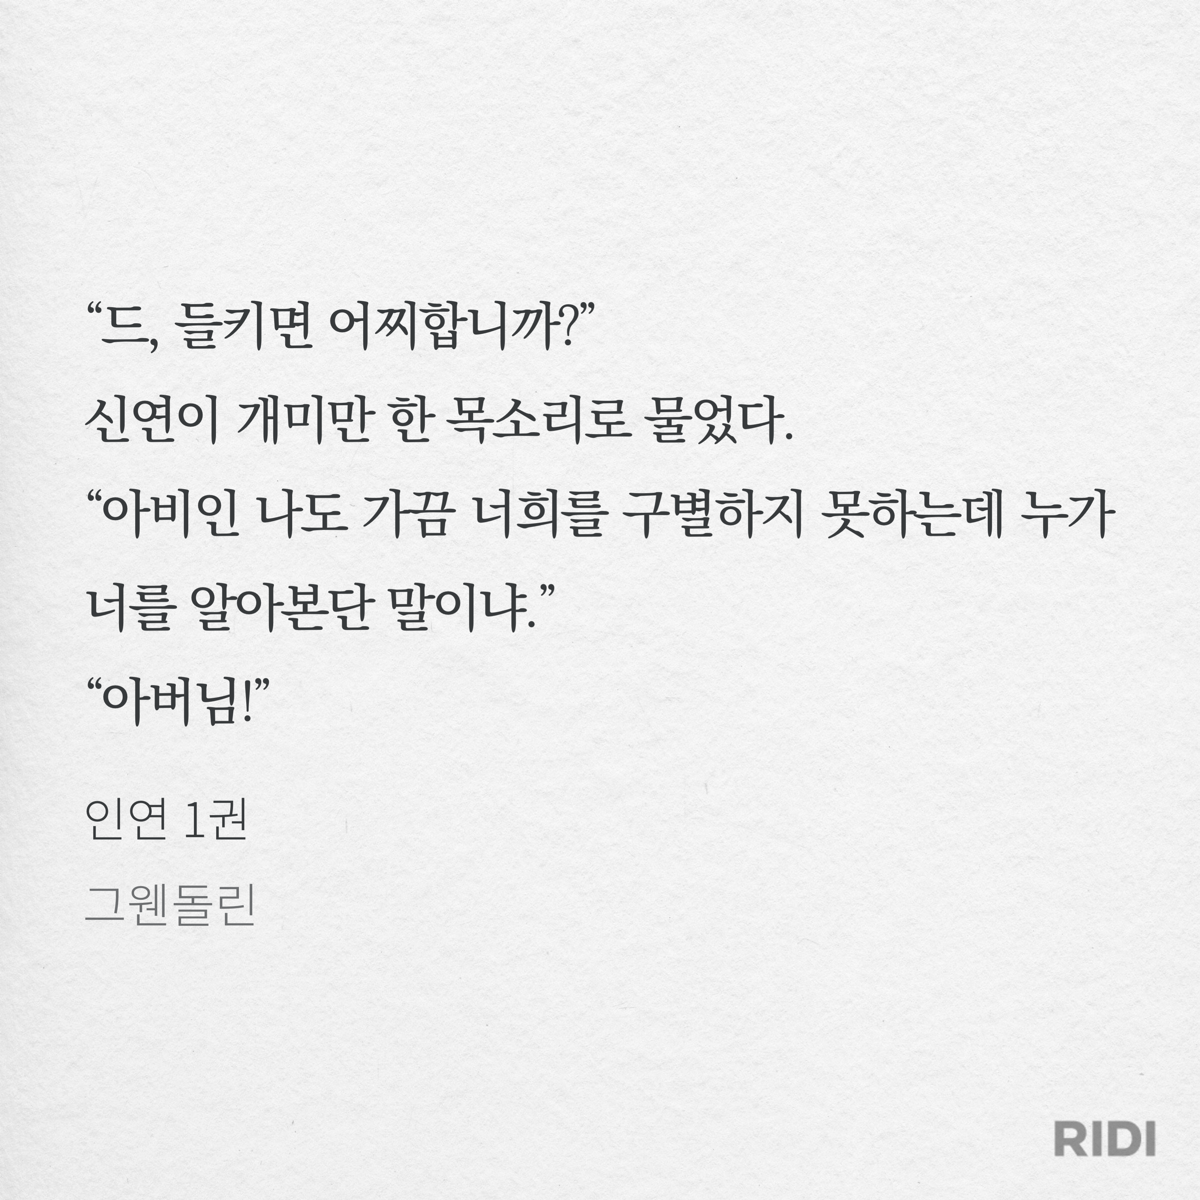 “드, 들키면 어찌합니까?”
신연이 개미만 한 목소리로 물었다.
“아비인 나도 가끔 너희를 구별하지 못하는데 누가
너를 알아본단 말이냐.”
“아버님!”
인연 1권
그웬돌린
RIDI